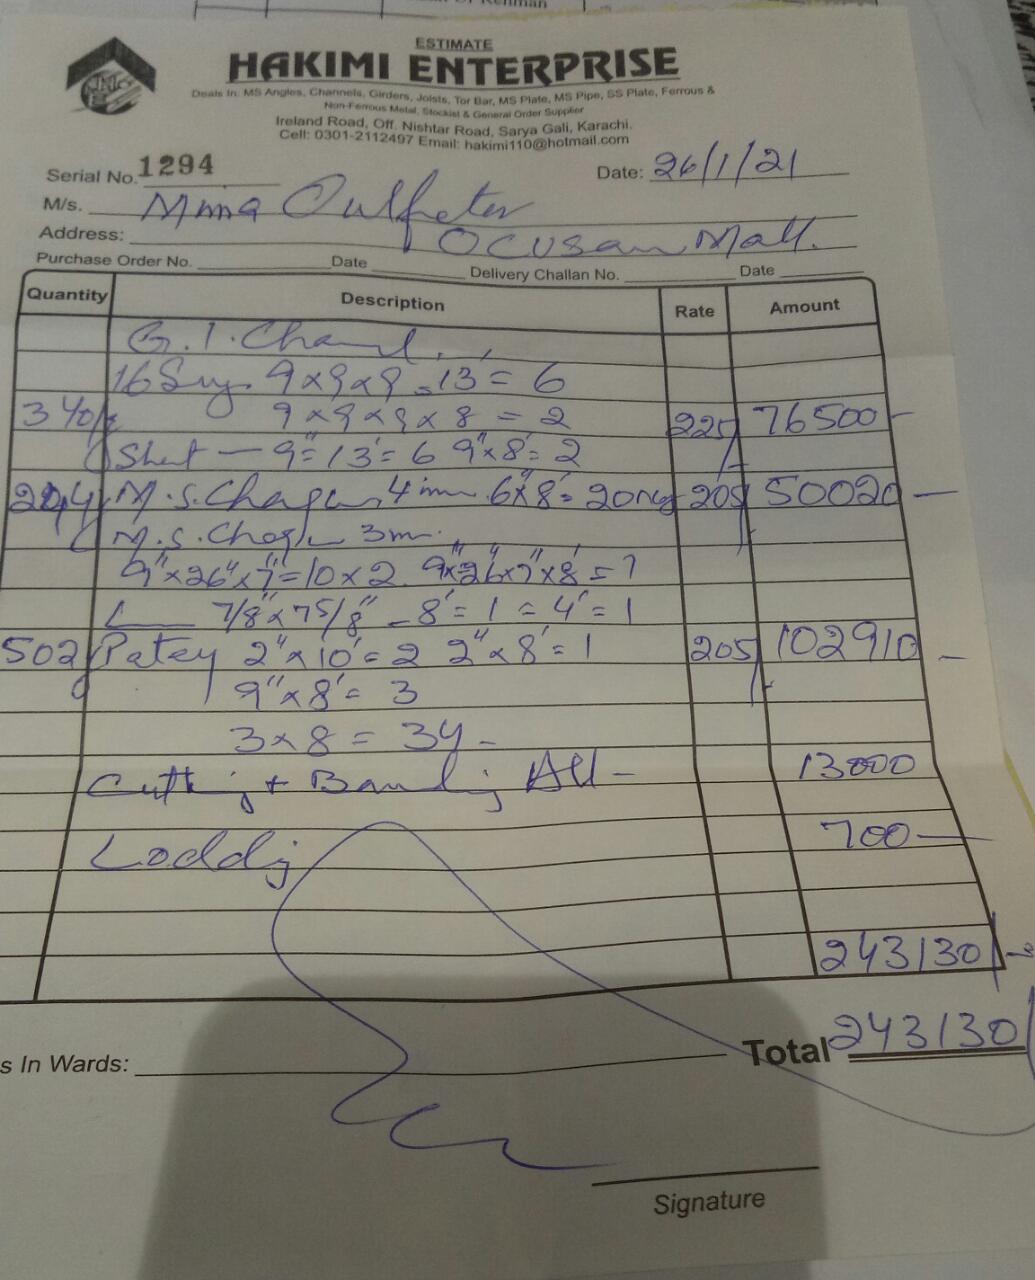 ESTIMATE
HAKIMI ENTERPRISE
Deals In: MS Angles, Channels, Girders, Joists, Tor Bar, MS Plate, MS Pipe, SS Plate, Ferrous &
Non-Ferrous Metal, Stockist & General Order Supplier
Ireland Road, Off. Nishtar Road, Sarya Gali, Karachi.
Cell: 0301-2112497 Email: hakimi110@hotmail.com
Serial No. 1294 Date: 26/1/21
M/s.
Address: Mall.
Purchase Order No. Date Delivery Challan No. Date
Quantity Description Rate Amount
G.I.
16 9x9x9 - 13' = 6
340 9x9x9x8 = 2 225/- 76500-
9" = 13' = 6 9"x8' = 2
M.S. 4 6"x8' = 20 205/- 50020-
M.S. 3m
9"x26"x7" = 10x2 9"x26"x7"x8' = 7
L 7/8"x75/8" - 8' = 1 = 4' = 1
502 Patey 2"x10' = 2 2"x8' = 1 205/- 102910-
9"x8' = 3
3x8 = 34-
Cutting + All - 13000
700-
243130/-
s In Wards: Total 243130/
Signature